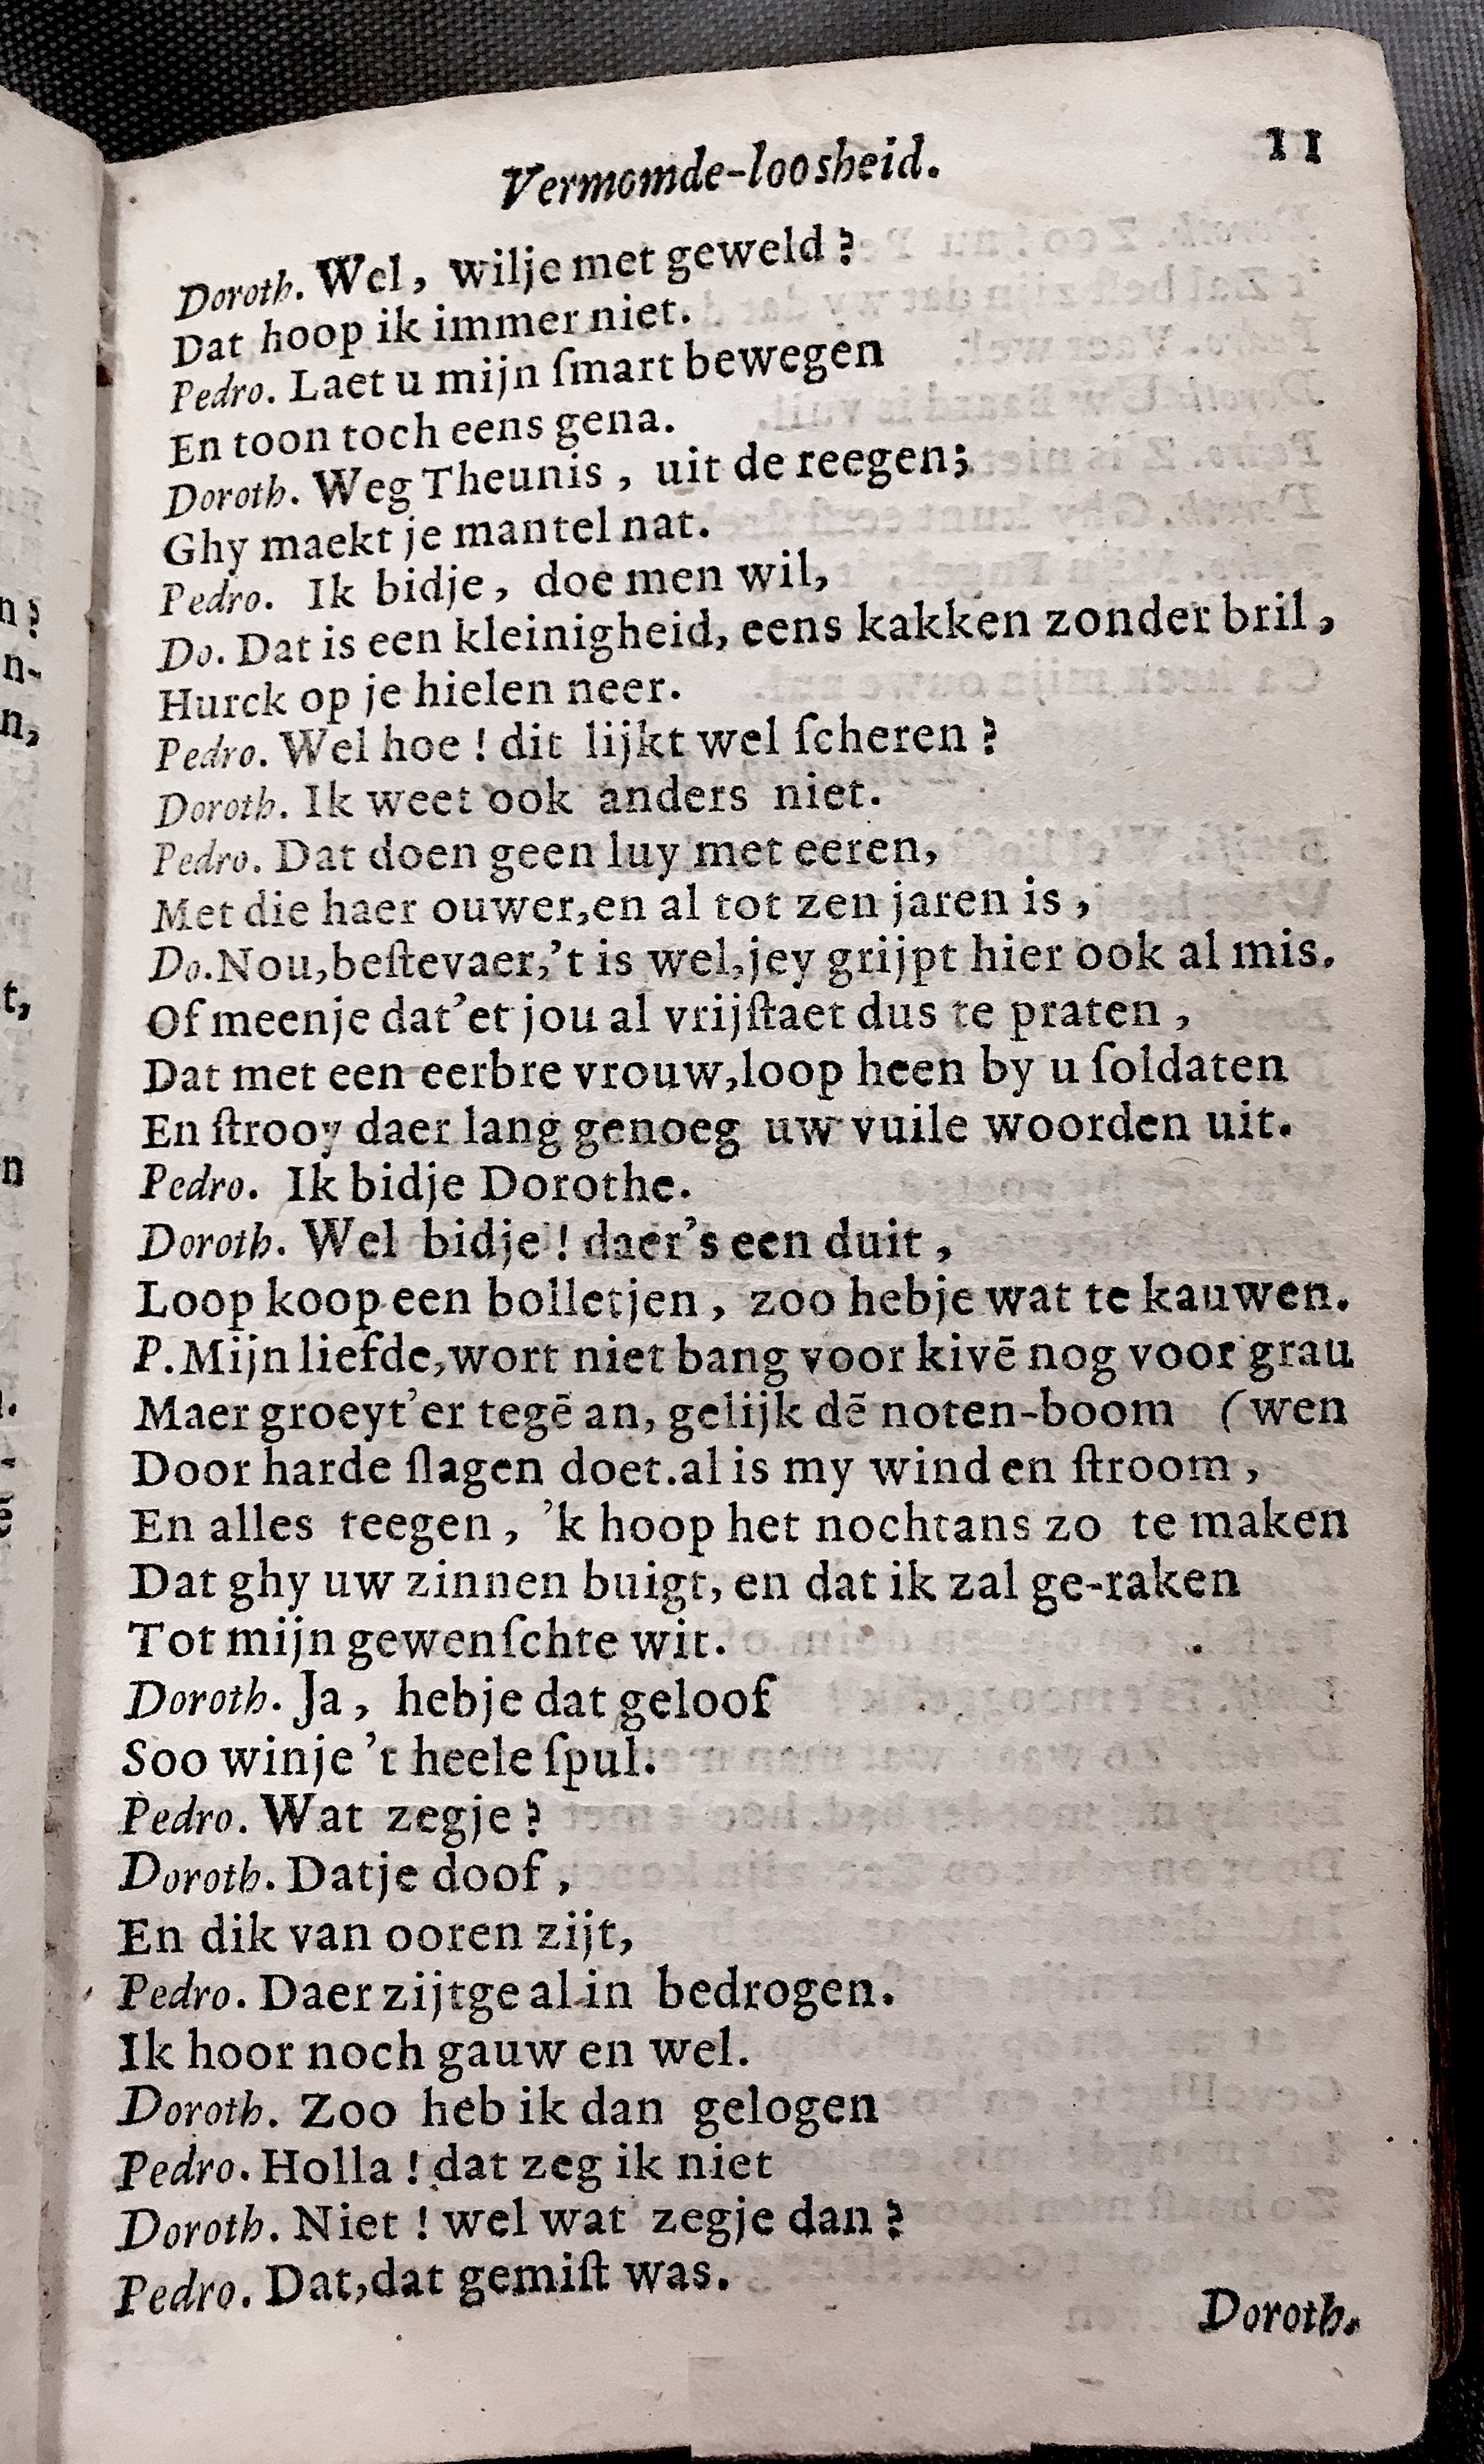 Vermomde-loosheid. 11
Doroth. Wel, wilje met geweld?
Dat hoop ik immer niet.
Pedro. Laet u mijn ſmart bewegen
En toon toch eens gena.
Doroth. Weg Theunis, uit de reegen;
Ghy maekt je mantel nat.
Pedro. Ik bidje, doe men wil,
Do. Dat is een kleinigheid, eens kakken zonder bril,
Hurck op je hielen neer.
Pedro. Wel hoe! dit lijkt wel ſcheren?
Doroth. Ik weet ook anders niet.
Pedro. Dat doen geen luy met eeren,
Met die haer ouwer,en al tot zen jaren is,
Do.Nou,beſtevaer,'t is wel,jey grijpt hier ook al mis.
Of meenje dat'et jou al vrijſtaet dus te praten,
Dat met een eerbre vrouw,loop heen by u ſoldaten
En ſtrooy daer lang genoeg uw vuile woorden uit.
Pedro. Ik bidje Dorothe.
Doroth. Wel bidje! daer's een duit,
Loop koop een bolletjen, zoo hebje wat te kauwen.
P.Mijn liefde,wort niet bang voor kivē nog voor grau
Maer groeyt'er tegē an, gelijk dē noten-boom (wen
Door harde ſlagen doet.al is my wind en ſtroom,
En alles teegen, 'k hoop het nochtans zo te maken
Dat ghy uw zinnen buigt, en dat ik zal ge-raken
Tot mijn gewenſchte wit.
Doroth. Ja, hebje dat geloof
Soo winje 't heele ſpul.
Pedro. Wat zegje?
Doroth. Datje doof,
En dik van ooren zijt,
Pedro. Daer zijtge al in bedrogen.
Ik hoor noch gauw en wel.
Doroth. Zoo heb ik dan gelogen
Pedro. Holla! dat zeg ik niet
Doroth. Niet! wel wat zegje dan?
Pedro. Dat,dat gemiſt was.
Doroth.